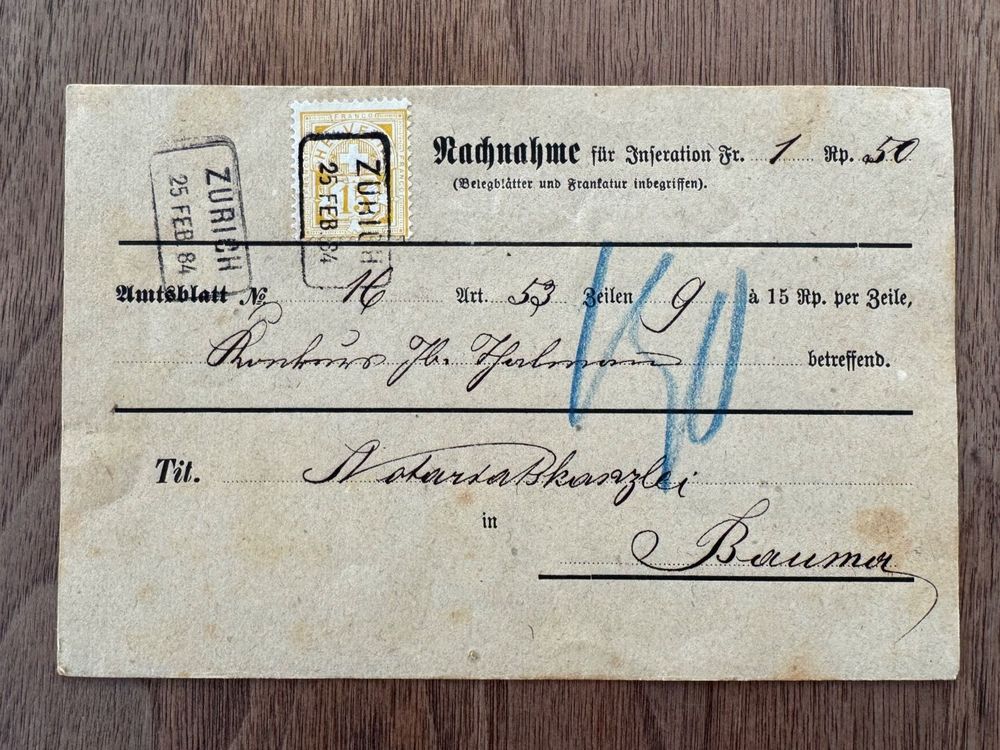 FRANCO
HELVETIA
15
ZÜRICH
25 FEB. 84
ZÜRICH
25 FEB. 84
Nachnahme für Inseration Fr. 1 Rp. 50
(Belegblätter und Frankatur inbegriffen).
Amtsblatt № 16 Art. 53 Zeilen 9 à 15 Rp. per Zeile,
Konkurs Jb. Thalmann betreffend.
150
Tit. Notariatskanzlei
in
Bauma